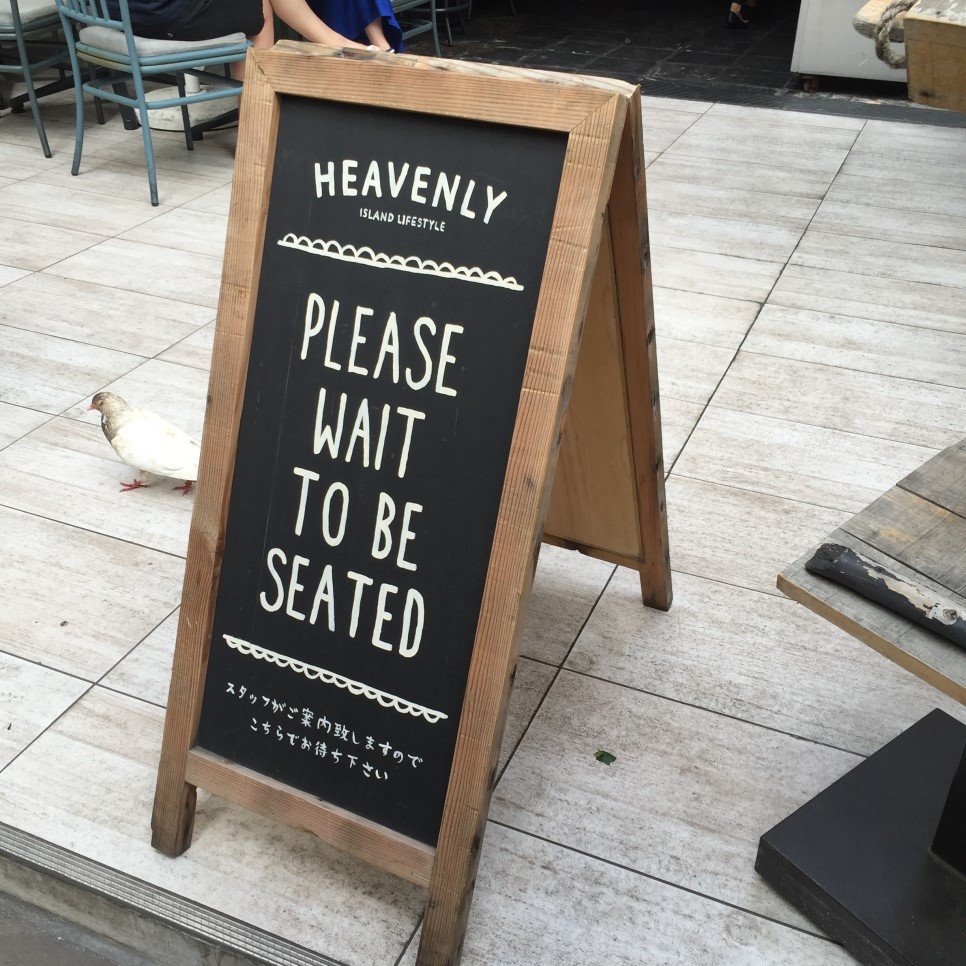 HEAVENLY
ISLAND LIFESTYLE
PLEASE
WAIT
TO BE
SEATED
スタッフがご案内致しますので
こちらでお待ち下さい